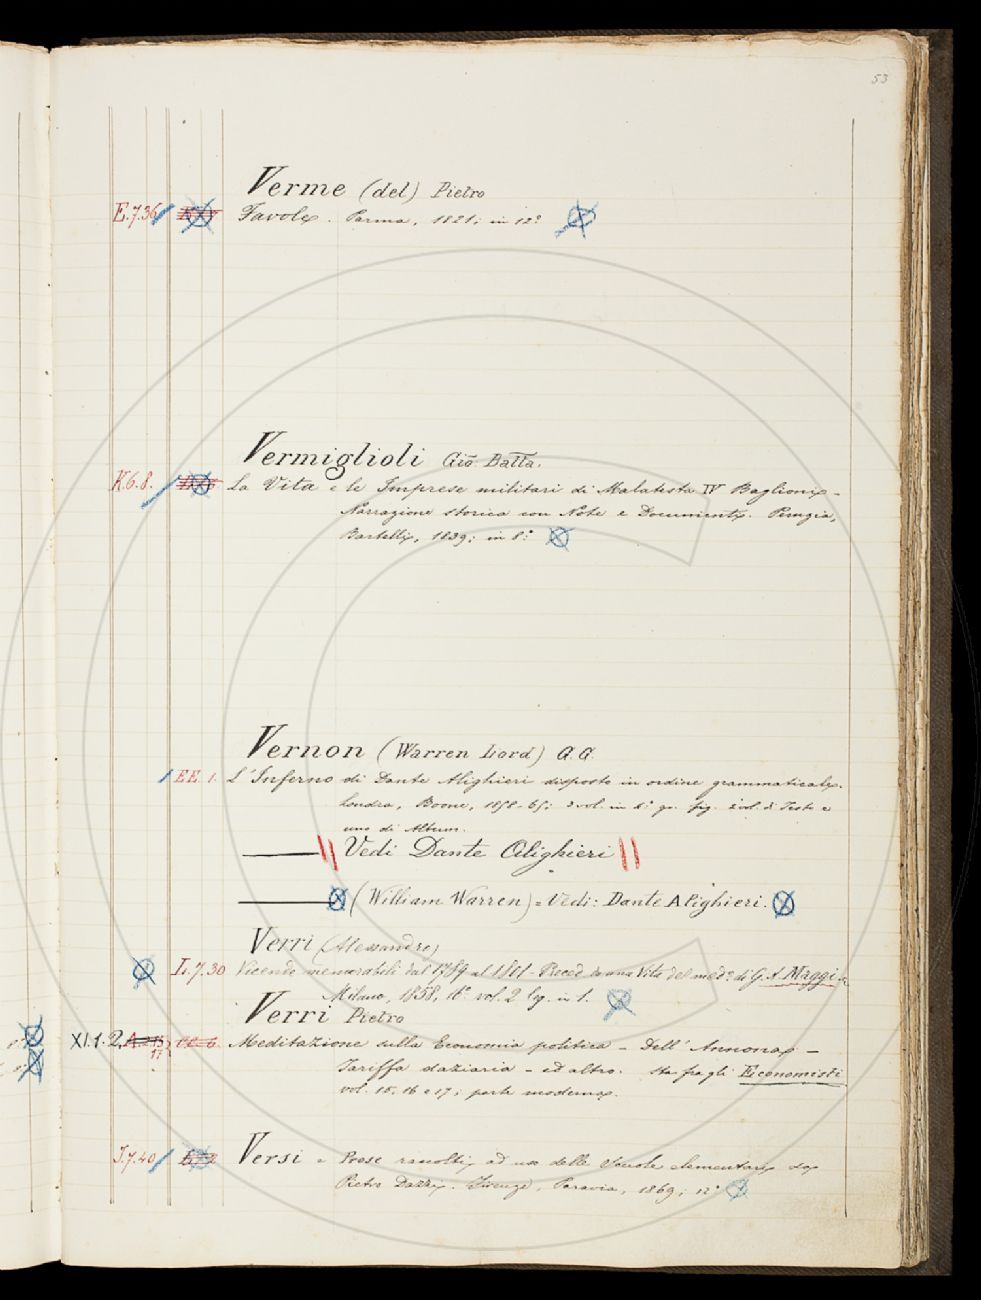 53
Verme (del) Pietro
E.7.36 Favole. Parma, 1821; in 12°
Vermiglioli Gio. Batta.
K.6.8. La Vita e le Imprese militari di Malatesta IV Baglioni -
Narrazione storica con Note e Documenti. Perugia,
Bartelli, 1839; in 8°
Vernon (Warren Lord) G. G.
EE. 1. L'Inferno di Dante Alighieri disposto in ordine grammaticale.
Londra, Boone, 1858-65; 3 vol. in 4° gr. fig. 2 vol. di Testo e
uno di Album.
Vedi Dante Alighieri
(William Warren) = Vedi: Dante Alighieri.
Verri (Alessandro)
L.7.30 Vicende memorabili dal 1789 al 1801 - Precede una Vita del med° di G. A. Maggi
Milano, 1858, vol. 2 leg. in 1.
Verri Pietro
XI.1.2. Meditazione sulla Economia politica - Dell'Annona -
Tariffa daziaria - ed altro. Sta fra gli Economisti
vol. 15, 16 e 17; parte moderna.
J.7.40 Versi e Prose raccolti ad uso delle Scuole elementari da
Pietro Dazzi. Firenze, Paravia, 1869; 12°